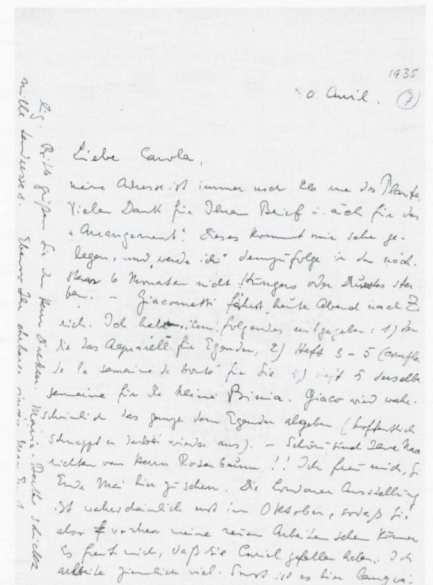 1935
0 Avril. (7)
Liebe Carola,
meine Adresse ist immer noch rue des Plantes
Vielen Dank für Ihren Brief u. auch für das
"Arrangement". Dieses kommt mir sehr ge-
legen, und werde ich demzufolge in den näch-
sten 6 Monaten nicht Hungers oder Durstes ster-
ben. – Giacometti fährt heute Abend nach Zü-
rich. Ich habe ihm folgendes mitgegeben: 1)
das Aquarell für Egender, 2) Heft 3-5
de la semaine de bonté für Sie 3) Heft 5 derselben
semaine für die kleine Binia. Giaco wird wahr-
scheinlich das ganze dem Egender abgeben (hoffentlich
schnappt er wieder aus). – Schön sind Ihre Nach-
richten von Herrn Rosenbaum!! Ich freu mich, Sie
Ende Mai hier zu sehen. Die Londoner Ausstellung
ist wahrscheinlich erst im Oktober, sodaß Sie
also vorher meine neuen Arbeiten sehen können
Es freut mich, daß Sie gefallen haben. Ich
arbeite ziemlich viel. Sonst ist es hier
Bitte grüßen Sie den Herrn Marie-Berthe schickt
mille tendresses.